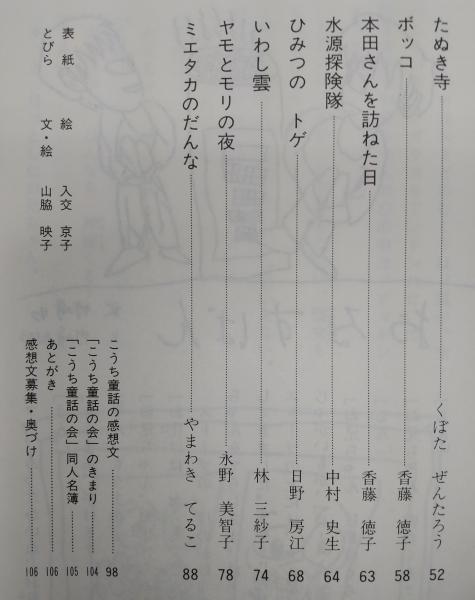 たぬき寺 くぼた ぜんたろう 52
ボッコ 香藤 徳子 58
本田さんを訪ねた日 香藤 徳子 63
水源探険隊 中村 史生 64
ひみつの トゲ 日野 房江 68
いわし雲 林 三紗子 74
ヤモとモリの夜 永野 美智子 78
ミエタカのだんな やまわき てるこ 88
こうち童話の感想文 98
「こうち童話の会」のきまり 104
「こうち童話の会」同人名簿 105
あとがき 106
感想文募集・奥づけ 106
表紙 絵 入交 京子
とびら 文・絵 山脇 映子
おるすばん